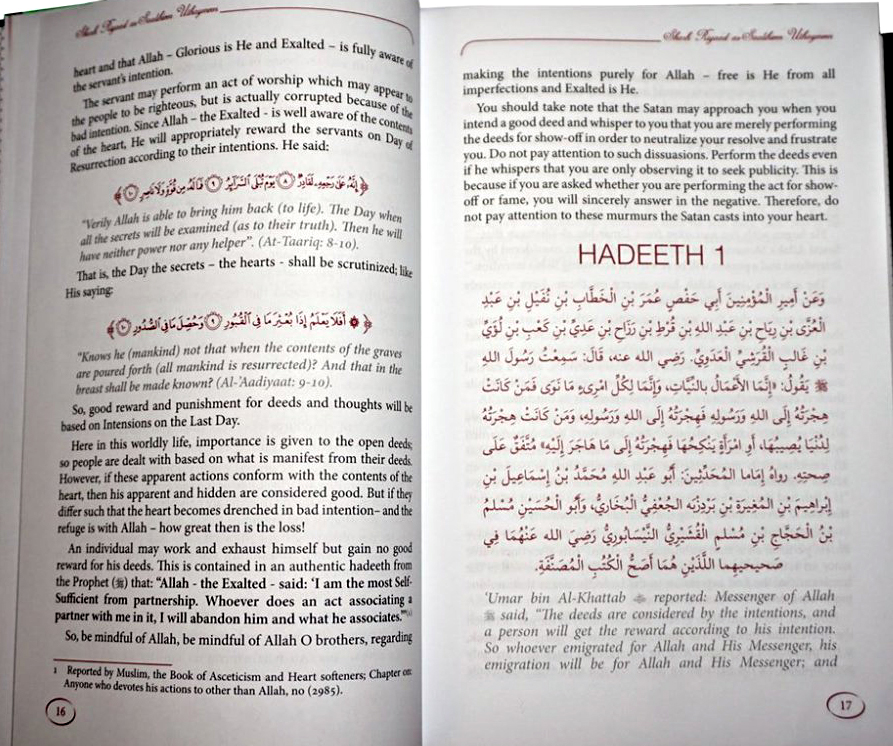 Sharh Riyaad us-Saaliheen Uthaymeen
heart and that Allah – Glorious is He and Exalted – is fully aware of
the servant's intention.
The servant may perform an act of worship which may appear to
the people to be righteous, but is actually corrupted because of the
bad intention. Since Allah – the Exalted - is well aware of the contents
of the heart, He will appropriately reward the servants on Day of
Resurrection according to their intentions. He said:
﴿ إِنَّهُۥ عَلَىٰ رَجْعِهِۦ لَقَادِرٌ ٨ يَوْمَ تُبْلَى ٱلسَّرَآئِرُ ٩ فَمَا لَهُۥ مِن قُوَّةٍ وَلَا نَاصِرٍ ١٠ ﴾
"Verily Allah is able to bring him back (to life). The Day when
all the secrets will be examined (as to their truth). Then he will
have neither power nor any helper". (At-Taariq: 8-10).
That is, the Day the secrets – the hearts - shall be scrutinized; like
His saying:
﴿ ۞ أَفَلَا يَعْلَمُ إِذَا بُعْثِرَ مَا فِى ٱلْقُبُورِ ٩ وَحُصِّلَ مَا فِى ٱلصُّدُورِ ١٠ ﴾
"Knows he (mankind) not that when the contents of the graves
are poured forth (all mankind is resurrected)? And that in the
breast shall be made known? (Al-'Aadiyaat: 9-10).
So, good reward and punishment for deeds and thoughts will be
based on Intensions on the Last Day.
Here in this worldly life, importance is given to the open deeds;
so people are dealt with based on what is manifest from their deeds.
However, if these apparent actions conform with the contents of the
heart, then his apparent and hidden are considered good. But if they
differ such that the heart becomes drenched in bad intention– and the
refuge is with Allah – how great then is the loss!
An individual may work and exhaust himself but gain no good
reward for his deeds. This is contained in an authentic hadeeth from
the Prophet (ﷺ) that: "Allah - the Exalted - said: 'I am the most Self-
Sufficient from partnership. Whoever does an act associating a
partner with me in it, I will abandon him and what he associates.'"(1)
So, be mindful of Allah, be mindful of Allah O brothers, regarding
1 Reported by Muslim, the Book of Asceticism and Heart softeners; Chapter on:
Anyone who devotes his actions to other than Allah, no (2985).
16
Sharh Riyaad us-Saaliheen Uthaymeen
making the intentions purely for Allah – free is He from all
imperfections and Exalted is He.
You should take note that the Satan may approach you when you
intend a good deed and whisper to you that you are merely performing
the deeds for show-off in order to neutralize your resolve and frustrate
you. Do not pay attention to such dissuasions. Perform the deeds even
if he whispers that you are only observing it to seek publicity. This is
because if you are asked whether you are performing the act for show-
off or fame, you will sincerely answer in the negative. Therefore, do
not pay attention to these murmurs the Satan casts into your heart.
HADEETH 1
وَعَنْ أَمِيرِ الْمُؤْمِنِينَ أَبِي حَفْصٍ عُمَرَ بْنِ الْخَطَّابِ بْنِ نُفَيْلِ بْنِ عَبْدِ
الْعُزَّى بْنِ رِيَاحِ بْنِ عَبْدِ اللهِ بْنِ قُرْطِ بْنِ رَزَاحِ بْنِ عَدِيِّ بْنِ كَعْبِ بْنِ لُؤَيِّ
بْنِ غَالِبٍ الْقُرَشِيِّ الْعَدَوِيِّ. رَضِيَ الله عنه، قَالَ: سَمِعْتُ رَسُولَ اللهِ
ﷺ يَقُولُ: «إِنَّمَا الأَعْمَالُ بِالنِّيَّاتِ، وَإِنَّمَا لِكُلِّ امْرِىءٍ مَا نَوَى فَمَنْ كَانَتْ
هِجْرَتُهُ إِلَى اللهِ وَرَسُولِهِ فَهِجْرَتُهُ إِلَى اللهِ وَرَسُولِهِ، وَمَنْ كَانَتْ هِجْرَتُهُ
لِدُنْيَا يُصِيبُهَا، أَوِ امْرَأَةٍ يَنْكِحُهَا فَهِجْرَتُهُ إِلَى مَا هَاجَرَ إِلَيْهِ» مُتَّفَقٌ عَلَى
صحتِهِ. رواهُ إِمَاما المُحَدِّثِينَ: أَبُو عَبْدِ اللهِ مُحَمَّدُ بْنُ إِسْمَاعِيلَ بْنِ
إِبراهِيمَ بْنِ المُغِيرَةِ بْنِ بَرْدِزْبَه الجُعْفِيُّ الْبُخَارِيُّ، وَأَبُو الْحُسَيْنِ مُسْلمُ
بْنُ الْحَجَّاجِ بْنِ مُسْلمٍ الْقُشَيْرِيُّ النَّيْسَابُورِيُّ رَضِيَ الله عَنْهُمَا فِي
صَحيحيهِما اللَّذَيْنِ هُمَا أَصَحُّ الْكُتُبِ الْمُصَنَّفَةِ.
'Umar bin Al-Khattab reported: Messenger of Allah
ﷺ said, "The deeds are considered by the intentions, and
a person will get the reward according to his intention.
So whoever emigrated for Allah and His Messenger, his
emigration will be for Allah and His Messenger; and
17